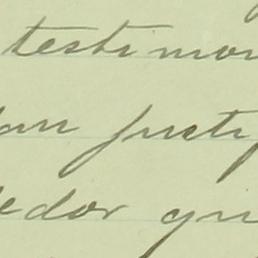 testimon
an justi
edor qu